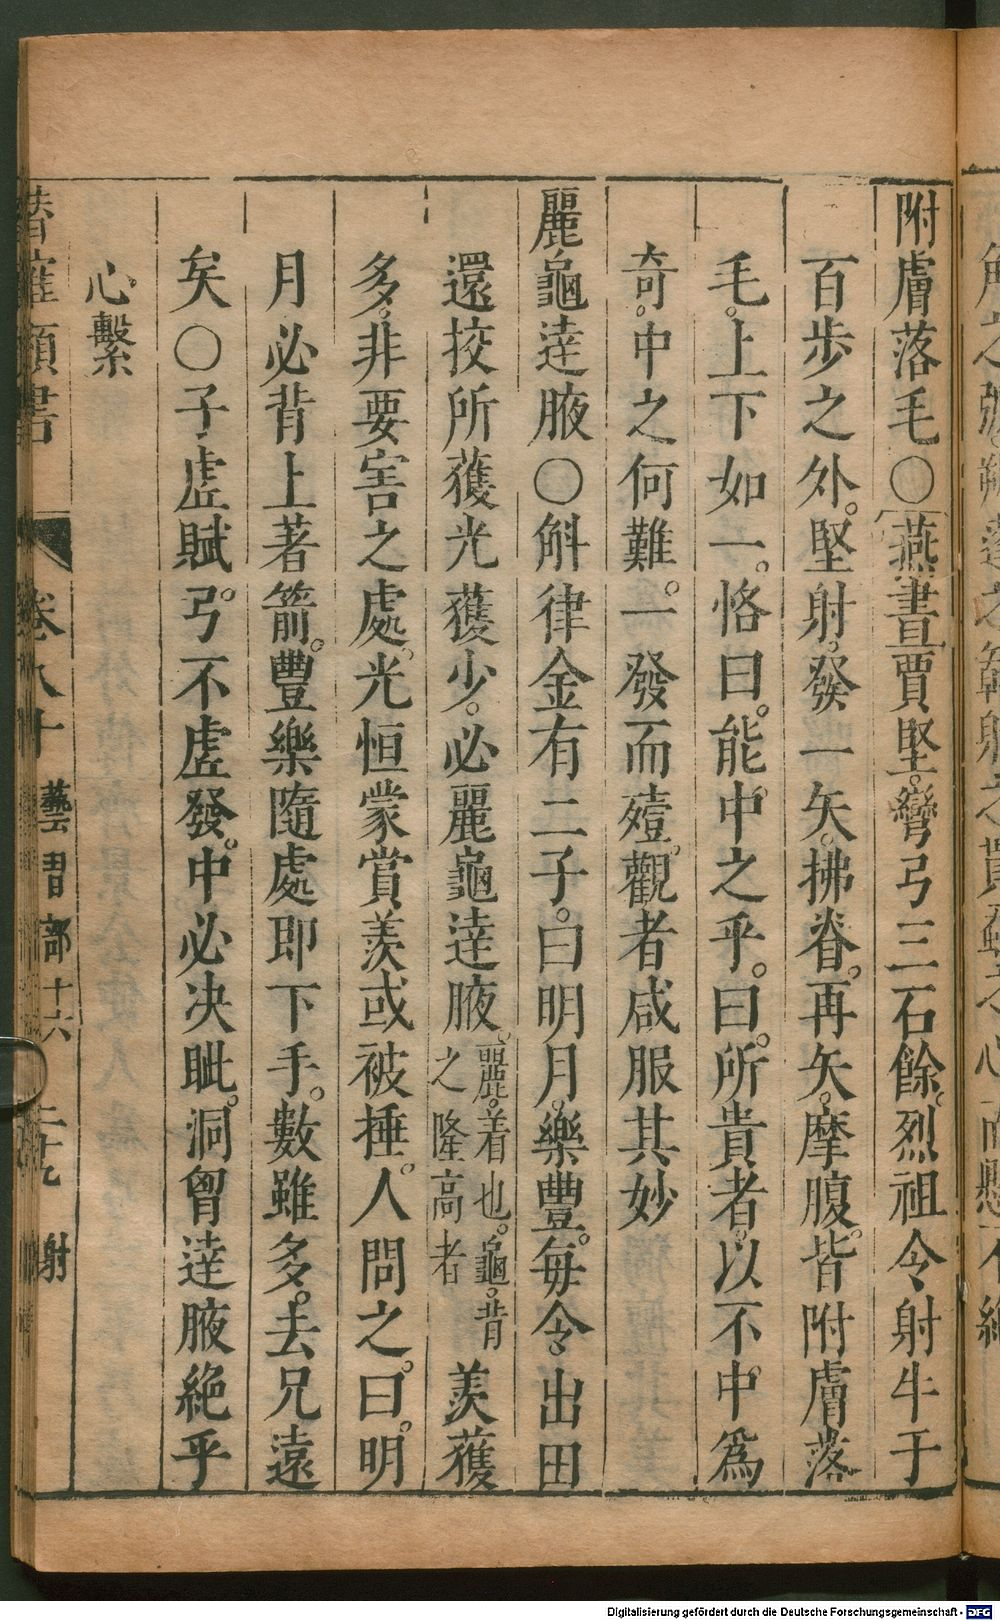 附膚落毛〇燕書賈堅。彎弓三石餘。烈祖令射牛于
百步之外。堅射。發一矢。拂脊。再矢。摩腹。皆附膚落
毛。上下如一。恪曰。能中之乎。曰。所貴者。以不中爲
奇。中之何難。一發而殪。觀者咸服其妙
麗龜達腋〇斛律金有二子。曰明月。樂豐。每令出田
還挍所獲光獲少。必麗龜達腋。麗。着也。龜。背之隆高者羨獲
多。非要害之處。光恒蒙賞羨或被捶。人問之。曰。明
月必背上著箭。豐樂隨處即下手。數雖多。去兄遠
矣〇子虛賦弓。不虛發。中必决眦。洞胷達腋絶乎
心繫
卷八十 藝習部十六 二十九 射
Digitalisierung gefördert durch die Deutsche Forschungsgemeinschaft - DFG